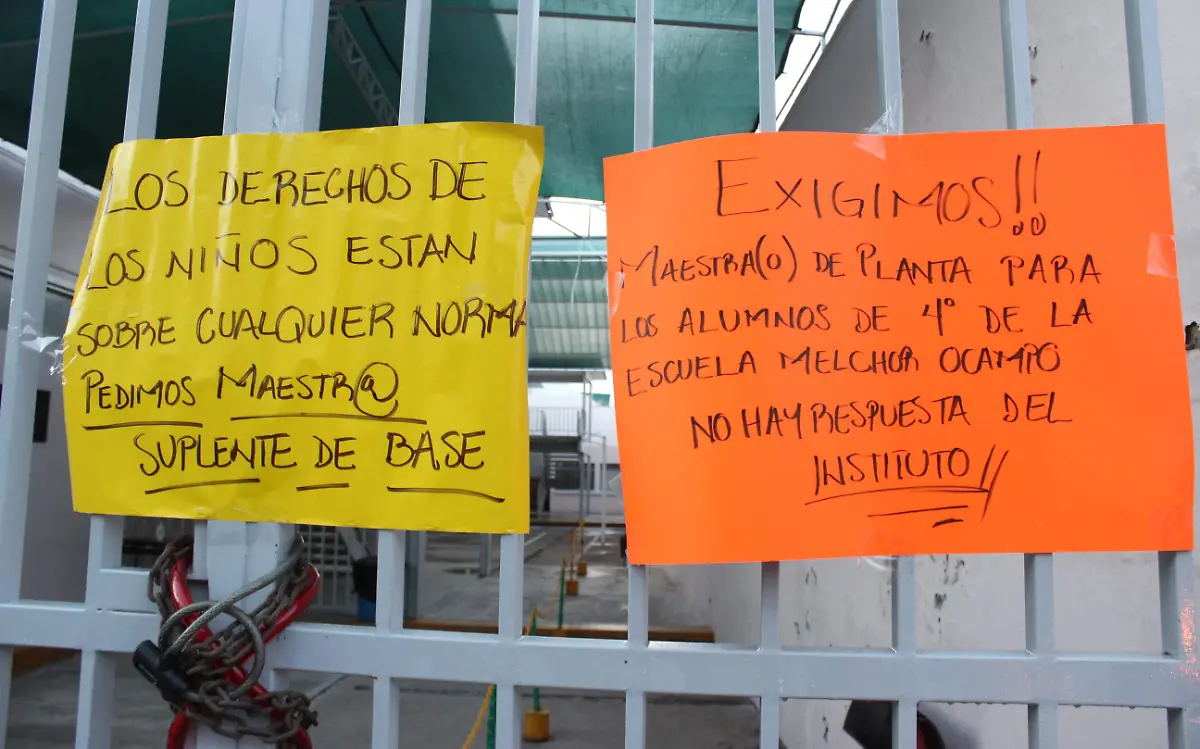 LOS DERECHOS DE
LOS NIÑOS ESTAN
SOBRE CUALQUIER NORMA
PEDIMOS MAESTR@
SUPLENTE DE BASE
EXIGIMOS!!
MAESTRA(O) DE PLANTA PARA
LOS ALUMNOS DE 4° DE LA
ESCUELA MELCHOR OCAMPO
NO HAY RESPUESTA DEL
INSTITUTO!!